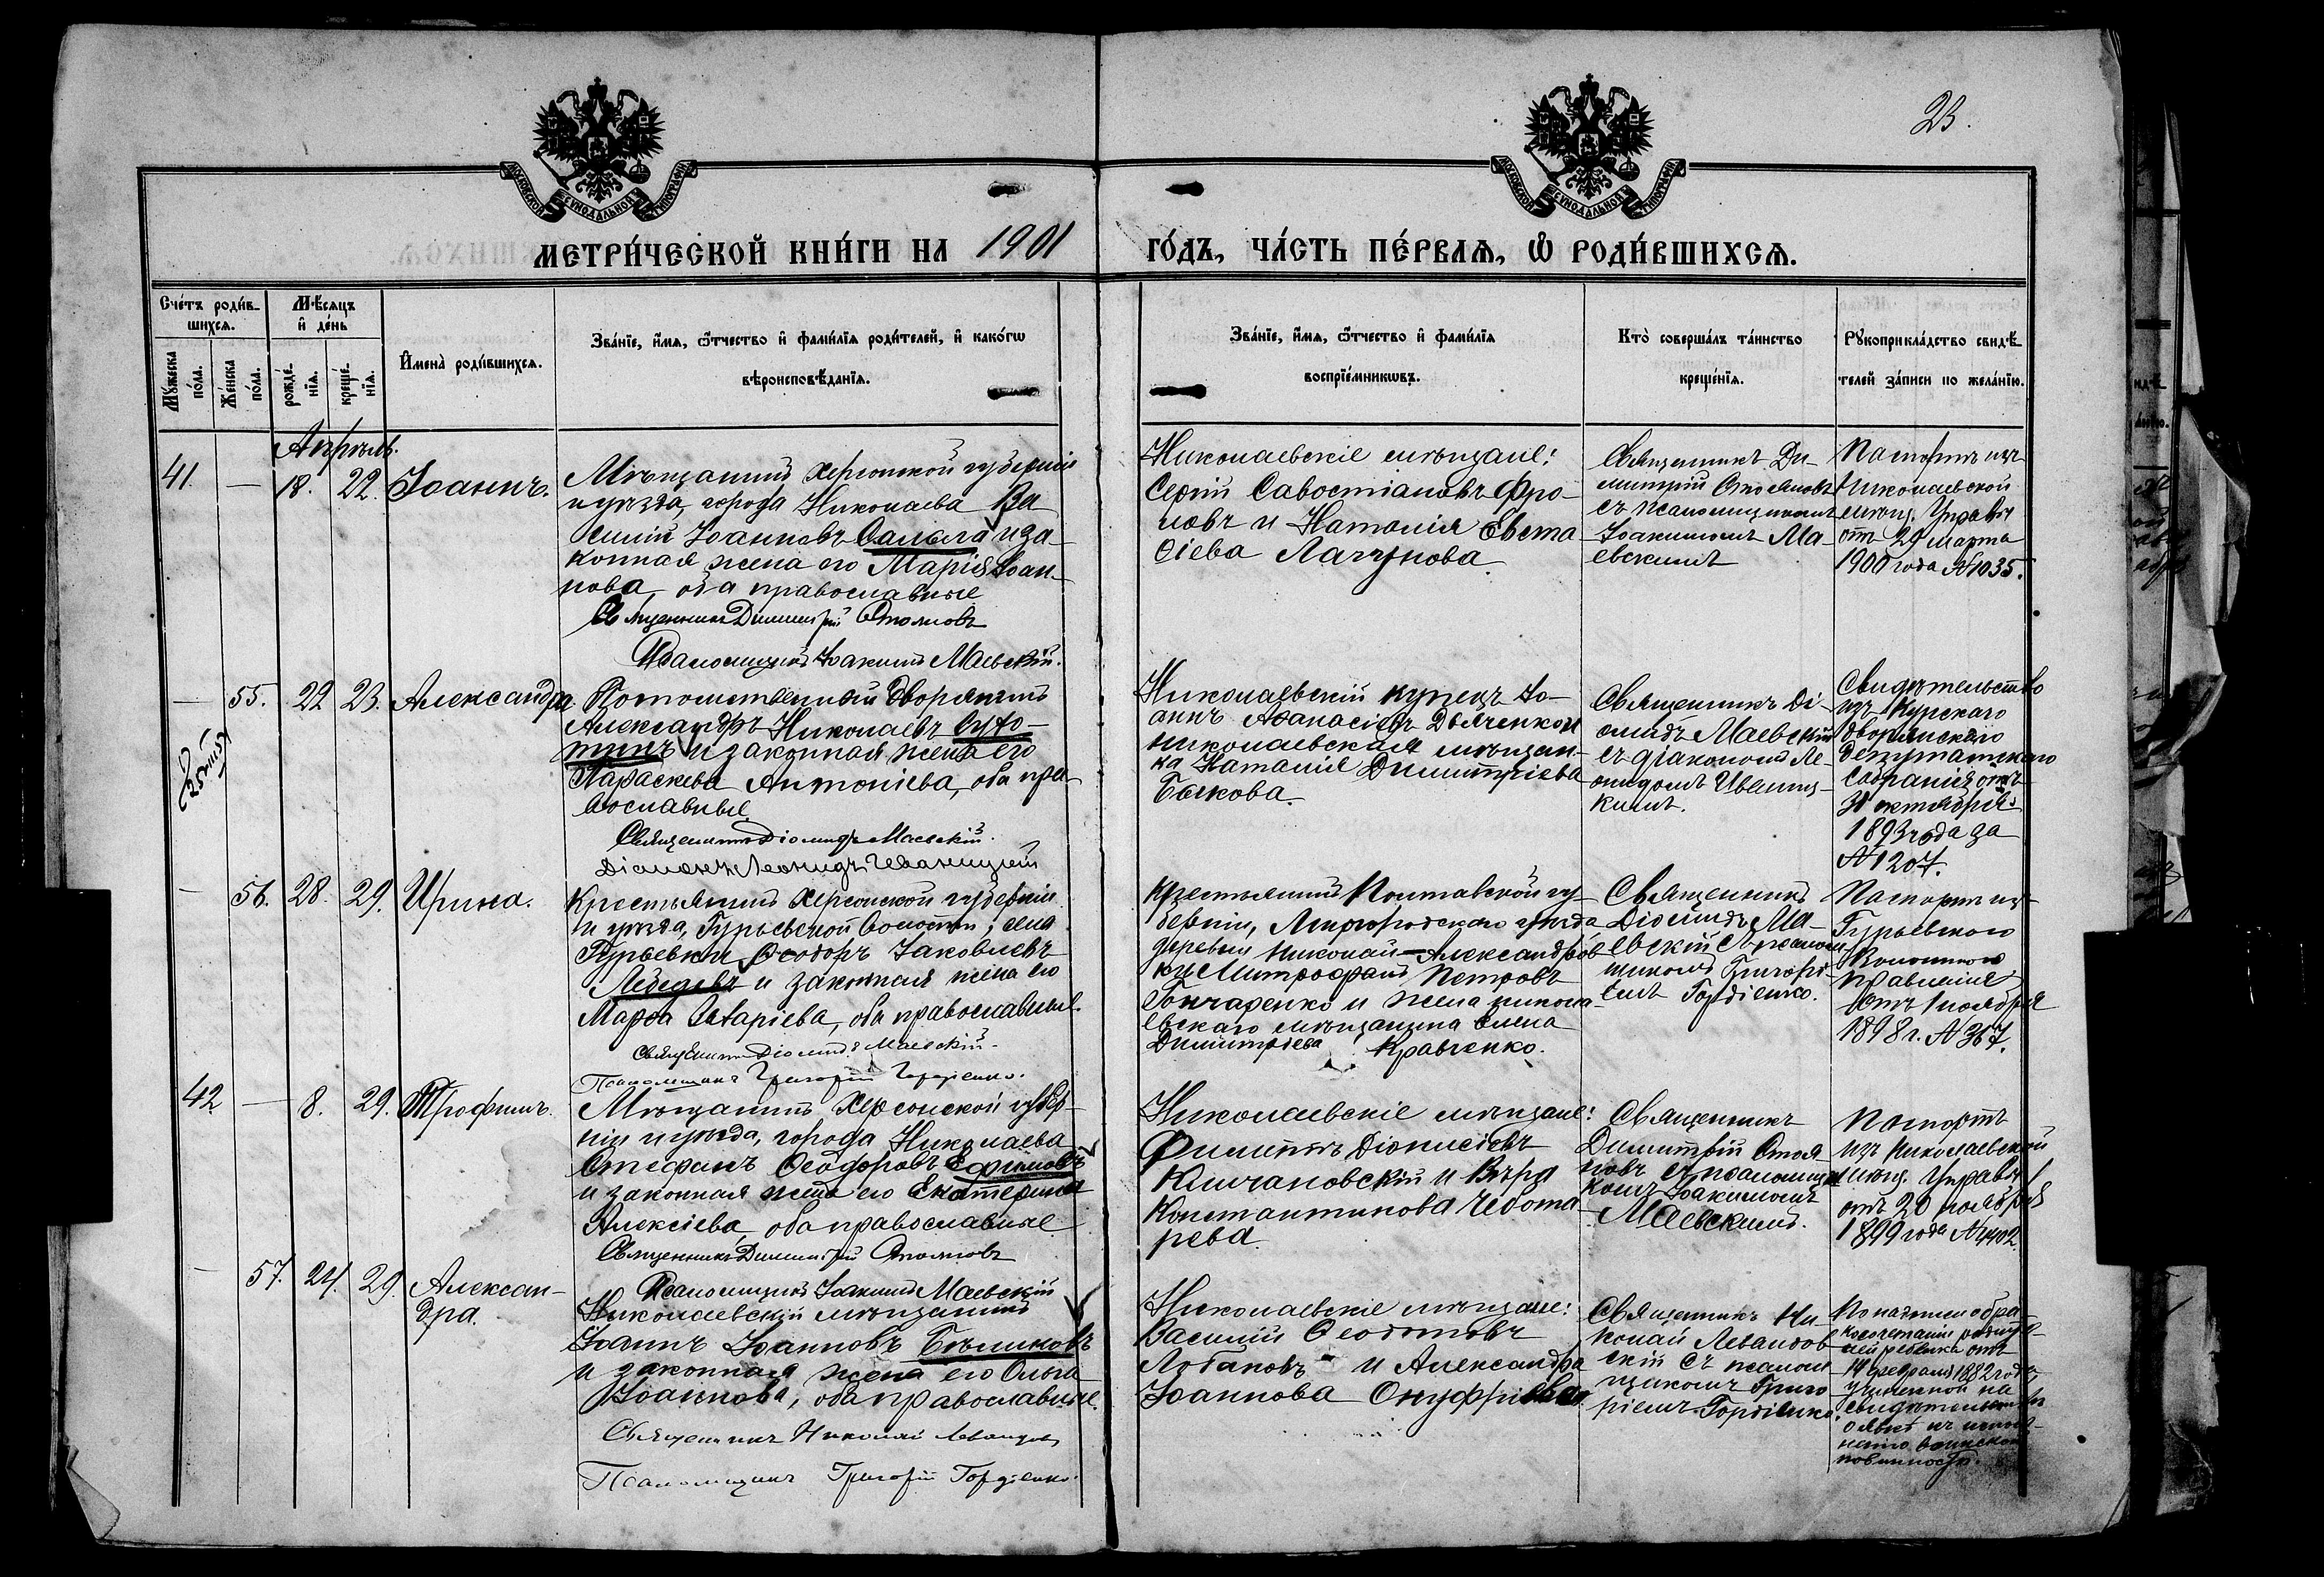 23.
МОСКОВСКОЙ СѴНОДАЛЬНОЙ ТИПОГРАФІИ
МОСКОВСКОЙ СѴНОДАЛЬНОЙ ТИПОГРАФІИ
МЕТРИ́ЧЕСКОЙ КНИ́ГИ НА 1901 ГО́ДЪ, ЧА́СТЬ ПЕ́РВАѦ, Ѡ РОДИ́ВШИХСѦ.
Сче́тъ роди́в-
шихся.
Мꙋ́жеска
по́ла.
Же́нска
по́ла.
Мѣ́сяцъ
и́ де́нь
рожде́-
нїѧ.
креще́-
нїѧ.
И҆мена̀ роди́вшихсѧ.
Зва́нїе, и҆́мѧ, ѻ҆́тчество и҆ фами́лїѧ роди́телей, и҆ како́гѡ
вѣроисповѣ́данїѧ.
Зва́нїе, и҆́мѧ, ѻ҆́тчество и҆ фами́лїѧ
воспрїе́мникѡвъ.
Кто̀ соверша́лъ та́инство
креще́нїѧ.
Рꙋкоприкла́дство свидѣ́-
телей за́писи по жела́нїю.
Апрѣль.
41. — 18. 22. Іоаннъ.
Мѣщанинъ Херсонской губерніи
и уѣзда, города Николаева Ва
силій Іоанновъ и за-
конная жена его Марія Іоан-
нова, оба православные
Священникъ Димитрій Стояновъ
Псаломщикъ Іоакимъ Маевскій.
Николаевскіе мѣщане:
Сергій Савостіановъ Фро-
ловъ и Наталія Евста
фіева Лагунова.
Священникъ Ди-
митрій Стояновъ
съ псаломщикомъ
Іоакимомъ Ма-
евскимъ
Паспортъ изъ
Николаевской
мѣщ. Управы
отъ 29 марта
1900 года № 1035.
— 55. 22 23. Александра
Потомственный дворянинъ
Александръ Николаевъ
и законная жена его
Параскева Антоніева, оба пра-
вославные
Священникъ Діомидъ Маевскій.
Діаконъ Леонидъ Иваницкій
Николаевскій купецъ Іо-
аннъ Аѳанасіевъ Дьяченко и
николаевская мѣщан-
ка Наталія Димитріева
Быкова.
Священникъ Ді-
омидъ Маевскій
съ діакономъ Ле-
онидомъ Иваниц-
кимъ.
Свидѣтельство
изъ Курскаго
дворянскаго
депутатскаго
собранія отъ
31 октября
1893 года за
№ 1207.
— 56. 28. 29. Ирина.
Крестьянинъ Херсонской губерніи
и уѣзда, Гурьевской волости, села
Гурьевки Ѳеодоръ Іаковлевъ
Лебедевъ и законная жена его
Марѳа Захаріева, оба православные.
Священникъ Діомидъ Маевскій.
Псаломщикъ Григорій Гордіенко.
Крестьянинъ Полтавской гу-
берніи, Миргородскаго уѣзда
деревни Николай-Александров
ки Митрофанъ Петровъ
Гончаренко и жена никола
евскаго мѣщанина Елена
Димитріева Кравченко.
Священникъ
Діомидъ Ма-
евскій съ псалом
щикомъ Григорі-
емъ Гордіенко.
Паспортъ изъ
Гурьевскаго
Волостного
правленія
отъ 1 ноября
1898 г. № 367.
42 — 8. 29. Трофимъ.
Мѣщанинъ Херсонской губер-
ніи и уѣзда, города Николаева
Стефанъ Ѳеодоровъ Ефимовъ
и законная жена его Екатерина
Алексіева, оба православные
Священникъ Димитрій Стояновъ
Псаломщикъ Іоакимъ Маевскій
Николаевскіе мѣщане:
Филиппъ Діонисіевъ
Климановскій и Вѣра
Константинова Чебота
рева.
Священникъ
Димитрій Стоя-
новъ съ псаломщи
комъ Іоакимомъ
Маевскимъ.
Паспортъ
изъ Николаевской
мѣщ. Управы
отъ 20 ноября
1899 года № 4402.
— 57. 24. 29. Алексан-
дра.
Николаевскій мѣщанинъ
Іоаннъ Іоанновъ Бѣликовъ
и законная жена его Ольга
Іоаннова, оба православные.
Священникъ Николай Левандов
Псаломщикъ Григорій Гордіенко.
Николаевскіе мѣщане:
Василій Ѳеодотовъ
Лобановъ и Александра
Іоаннова Онуфріева
Священникъ Ни-
колай Левандов
скій съ псалом
щикомъ Григо
ріемъ Гордіенко.
По надписи о бра
косочетаніи родите-
лей ребенка отъ
14 февраля 1882 года,
учиненной на
свидѣтельствѣ
о явкѣ къ испол-
ненію воинской
повинности.